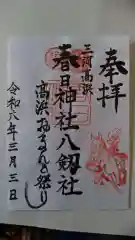 奉拝
三河高浜
春日神社八剱社
高浜おまんと祭り
令和六年三月三日